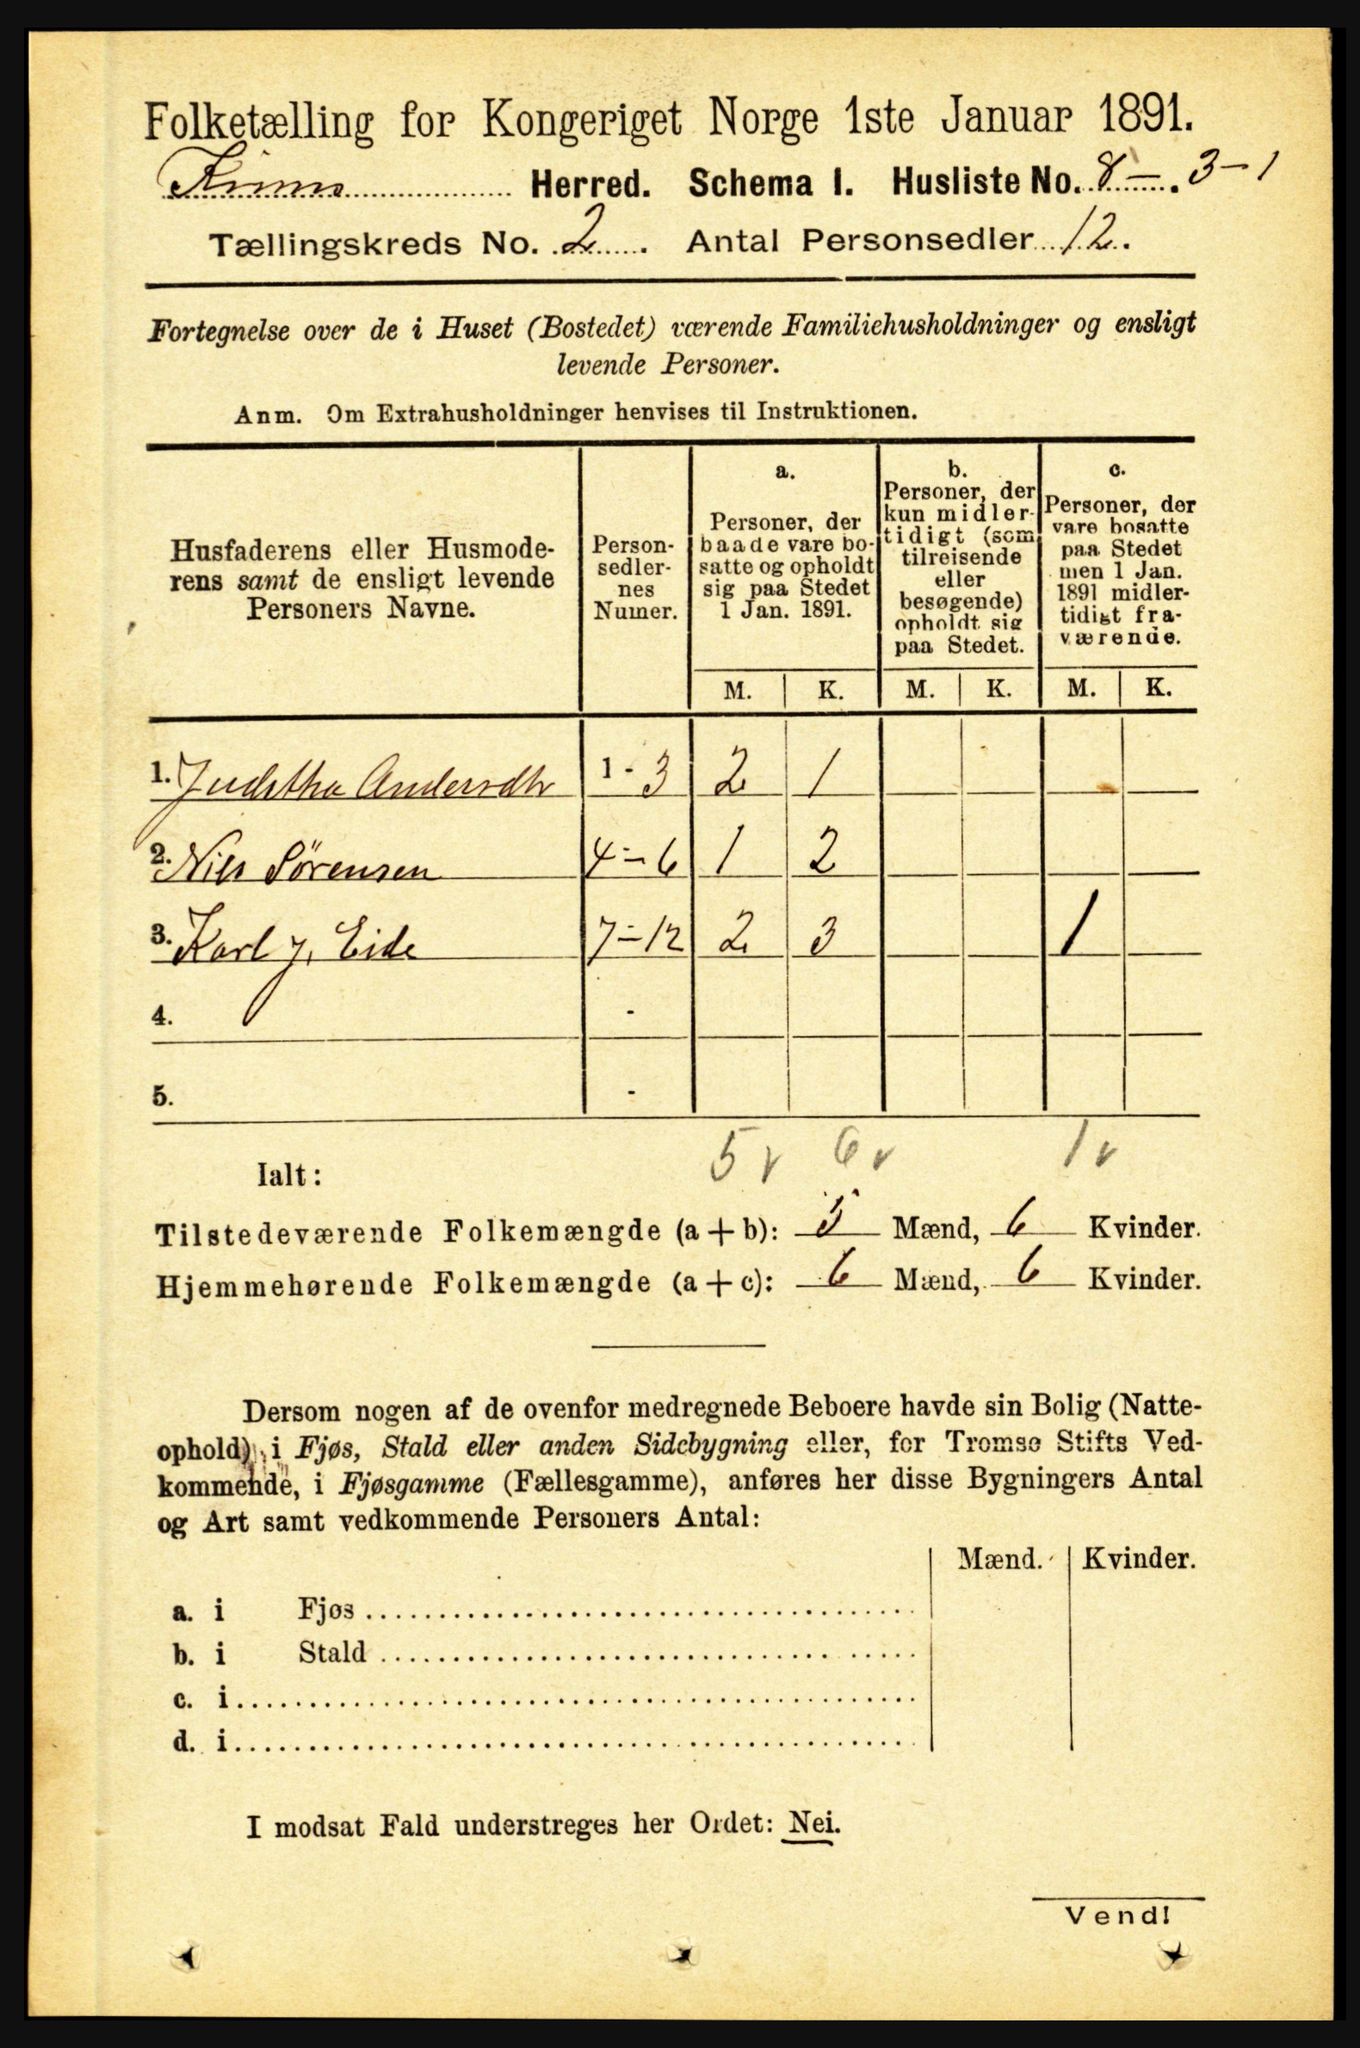 Folketælling for Kongeriget Norge 1ste Januar 1891.
Kinn Herred. Schema I. Husliste No. 8 — 3-1
Tællingskreds No. 2. Antal Personsedler 12.
Fortegnelse over de i Huset (Bostedet) værende Familiehusholdninger og ensligt
levende Personer.
Anm. Om Extrahusholdninger henvises til Instruktionen.
Husfaderens eller Husmode-
rens samt de ensligt levende
Personers Navne.
Person-
sedler-
nes
Numer.
a.
Personer, der
baade vare bo-
satte og opholdt
sig paa Stedet
1 Jan. 1891.
b.
Personer, der
kun midler-
tidigt (som
tilreisende
eller
besøgende)
opholdt sig
paa Stedet.
c.
Personer, der
vare bosatte
paa Stedet
men 1 Jan.
1891 midler-
tidigt fra-
værende.
M. K. M. K. M. K.
1. Juditha Andersdtr 1 - 3 2 1
2. Nils Sörensen 4 - 6 1 2
3. Karl J. Eide 7 - 12 2 3 1
4. -
5. -
5 v 6 v 1 v
Ialt:
Tilstedeværende Folkemængde (a + b): 5 Mænd, 6 Kvinder.
Hjemmehørende Folkemængde (a + c): 6 Mænd, 6 Kvinder.
Dersom nogen af de ovenfor medregnede Beboere havde sin Bolig (Natte-
ophold) i Fjøs, Stald eller anden Sidebygning eller, for Tromsø Stifts Ved-
kommende, i Fjøsgamme (Fællesgamme), anføres her disse Bygningers Antal
og Art samt vedkommende Personers Antal:
Mænd. Kvinder.
a. i Fjøs
b. i Stald
c. i
d. i
I modsat Fald understreges her Ordet: Nei.
Vend!